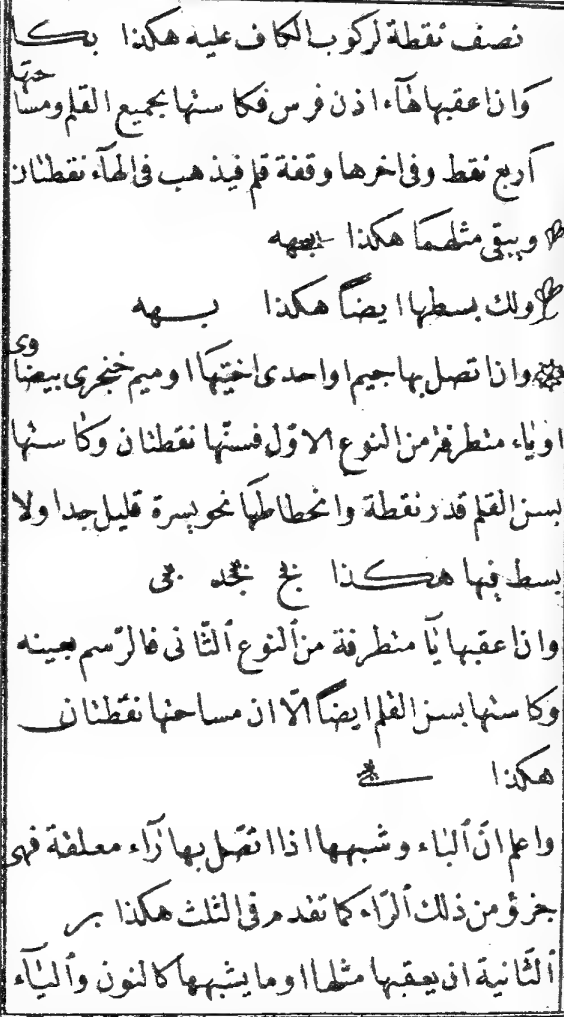 نصف نقطة لركوب الكاف عليه هكذا بكا
وان اعقبها هاء اذن فرس فكاستها بجميع القلم ومساحتها
اربع نقط وفى اخرها وقفة قلم فيذهب فى الهآء نقطتان
ويبقى مثلهما هكذا بهه
ولك بسطها ايضاً هكذا بهه
وان اتصل بها جيم او احدى اختيها او ميم خنجرى بيضاوى
او ياء متطرفة من النوع الاوّل فسنّها نقطتان وكاستها
بسن القلم قدر نقطة وانحطاطها نحو يسرة قليل جدا ولا
بسط فيها هكذا بج بجد بمى
وان اعقبها يآ متطرفة من ٱلنوع ٱلثّانى فالرّسم بعينه
وكاستها بسن القلم ايضاً الّا ان مساحتها نقطتان
هكذا
واعلم انّ ٱلباء وشبهها اذا اتّصل بها رآء معلقة فهى
جزؤ من ذلك ٱلرّاء كما تقدم فى الثلث هكذا بر
ٱلثّانية ان يعقبها مثلها او ما يشبهها كالنون وٱليآء